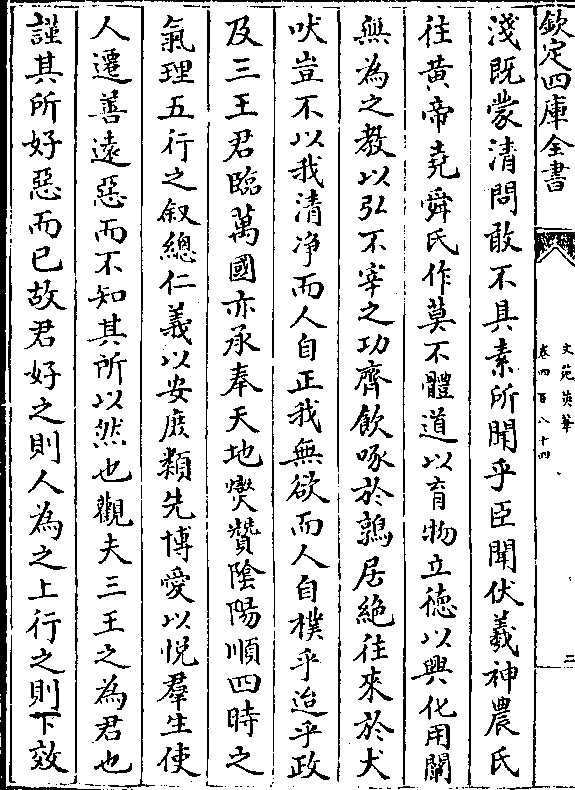 欽定四庫全書
文苑英華
卷四百八十四
二
淺既蒙清問敢不具素所聞乎臣聞伏羲神農氏
往黃帝堯舜氏作莫不體道以育物立德以興化用闡
無為之教以弘不宰之功齊飲啄於鶉居絶往來於犬
吠豈不以我清净而人自正我無欲而人自樸乎迨乎政
及三王君臨萬國亦承奉天地爕贊陰陽順四時之
氣理五行之叙總仁義以安庶類先博愛以悦羣生使
人遷善遠惡而不知其所以然也觀夫三王之為君也
謹其所好惡而已故君好之則人為之上行之則下效